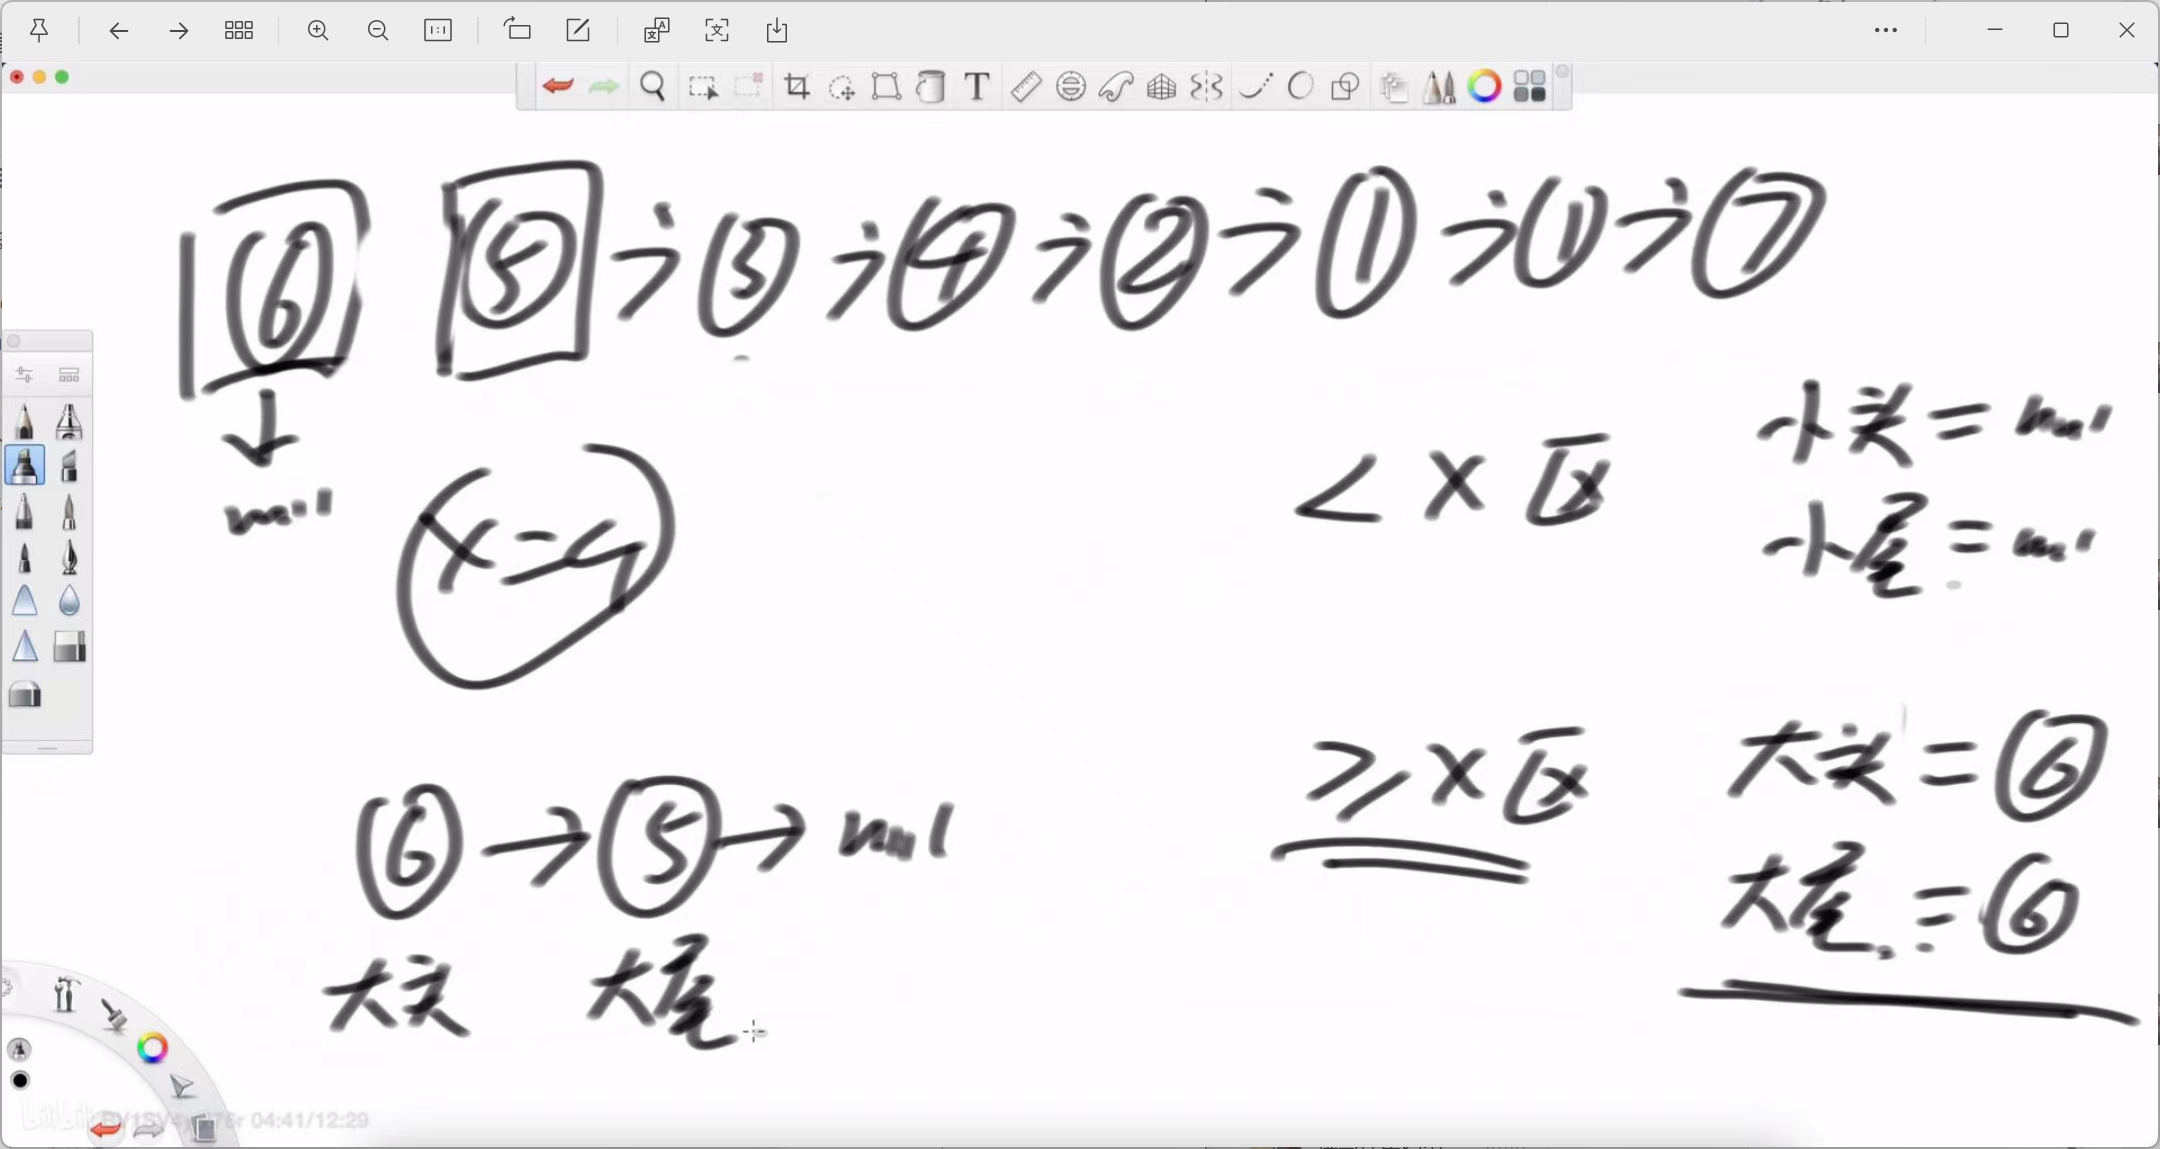 ⑥ ⑤ → ③ → ④ → ② → ① → ① → ⑦
null
x=4
< x 区
小头 = null
小尾 = null
≥ x 区
大头 = ⑥
大尾 = ⑥
⑥ → ⑤ → null
大头 大尾
04:41/12:29